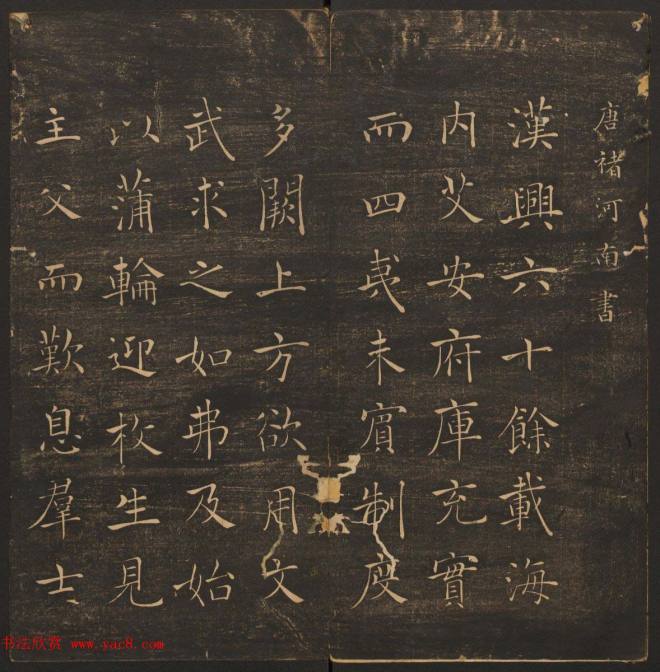 唐褚河南書
漢興六十餘載海
内艾安府庫充實
而四夷未賓制度
多闕上方欲用文
武求之如弗及始
以蒲輪迎枚生見
主父而歎息羣士
书法欣赏 www.yac8.com